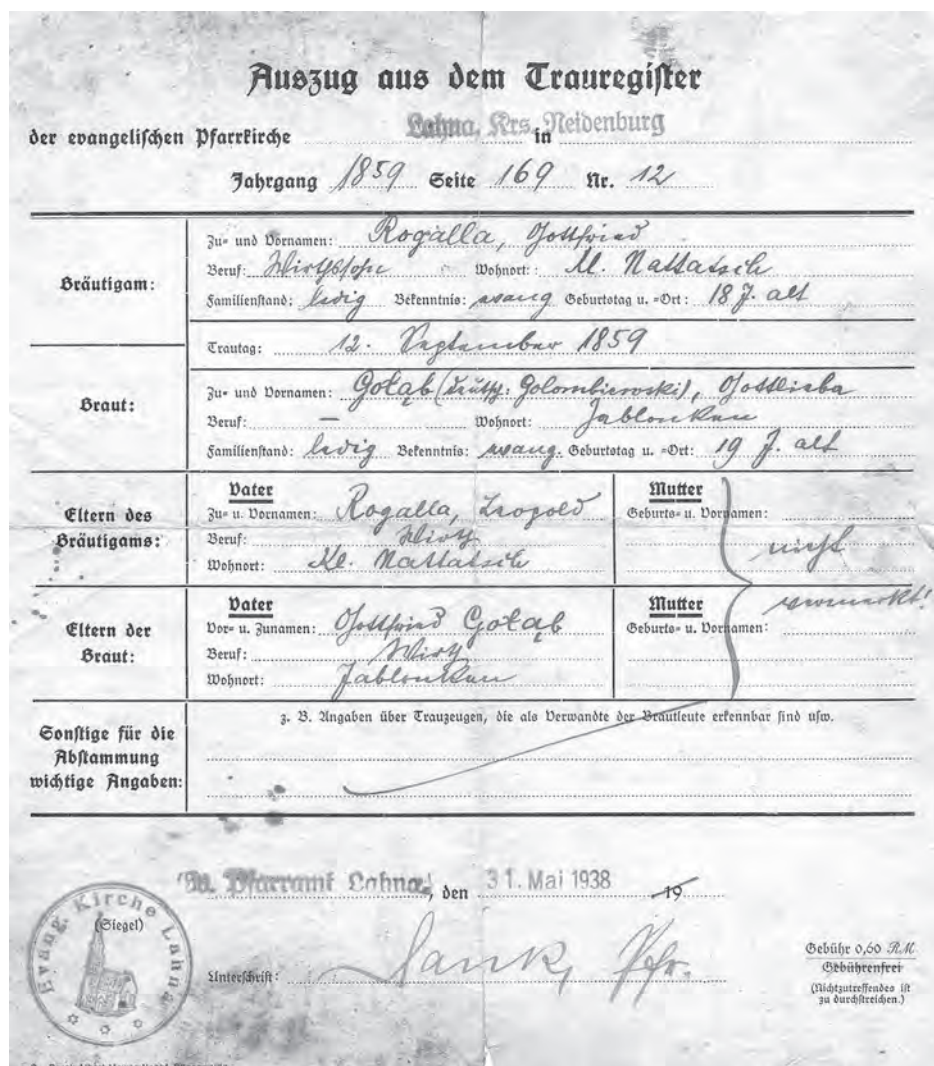 Auszug aus dem Trauregister
der evangelischen Pfarrkirche Lahna, Krs. Neidenburg in
Jahrgang 1859 Seite 169 Nr. 12
Bräutigam:
Zu- und Vornamen: Rogalla, Gottfried
Beruf: Wirthssohn Wohnort: Kl. Nattatsch
Familienstand: ledig Bekenntnis: evang Geburtstag u. -Ort: 18 J. alt
Trautag: 12. September 1859
Braut:
Zu- und Vornamen: Gołąb (deutsch: Golombiewski), Gottlieba
Beruf: — Wohnort: Jablonken
Familienstand: ledig Bekenntnis: evang. Geburtstag u. -Ort: 19 J. alt
Eltern des Bräutigams:
Vater
Zu- u. Vornamen: Rogalla, Leopold
Beruf: Wirth
Wohnort: Kl. Nattatsch
Mutter
Geburts- u. Vornamen:
nicht
Eltern der Braut:
Vater
Vor- u. Zunamen: Gottfried Gołąb
Beruf: Wirth
Wohnort: Jablonken
Mutter
vermerkt!
Geburts- u. Vornamen:
Sonstige für die Abstammung wichtige Angaben:
z. B. Angaben über Trauzeugen, die als Verwandte der Brautleute erkennbar sind usw.
Ev. Pfarramt Lahna, den 31. Mai 1938 19
(Siegel)
Evang. Kirche Lahna
Unterschrift: Sank, Pfr.
Gebühr 0,60 RM
Gebührenfrei
(Nichtzutreffendes ist
zu durchstreichen.)